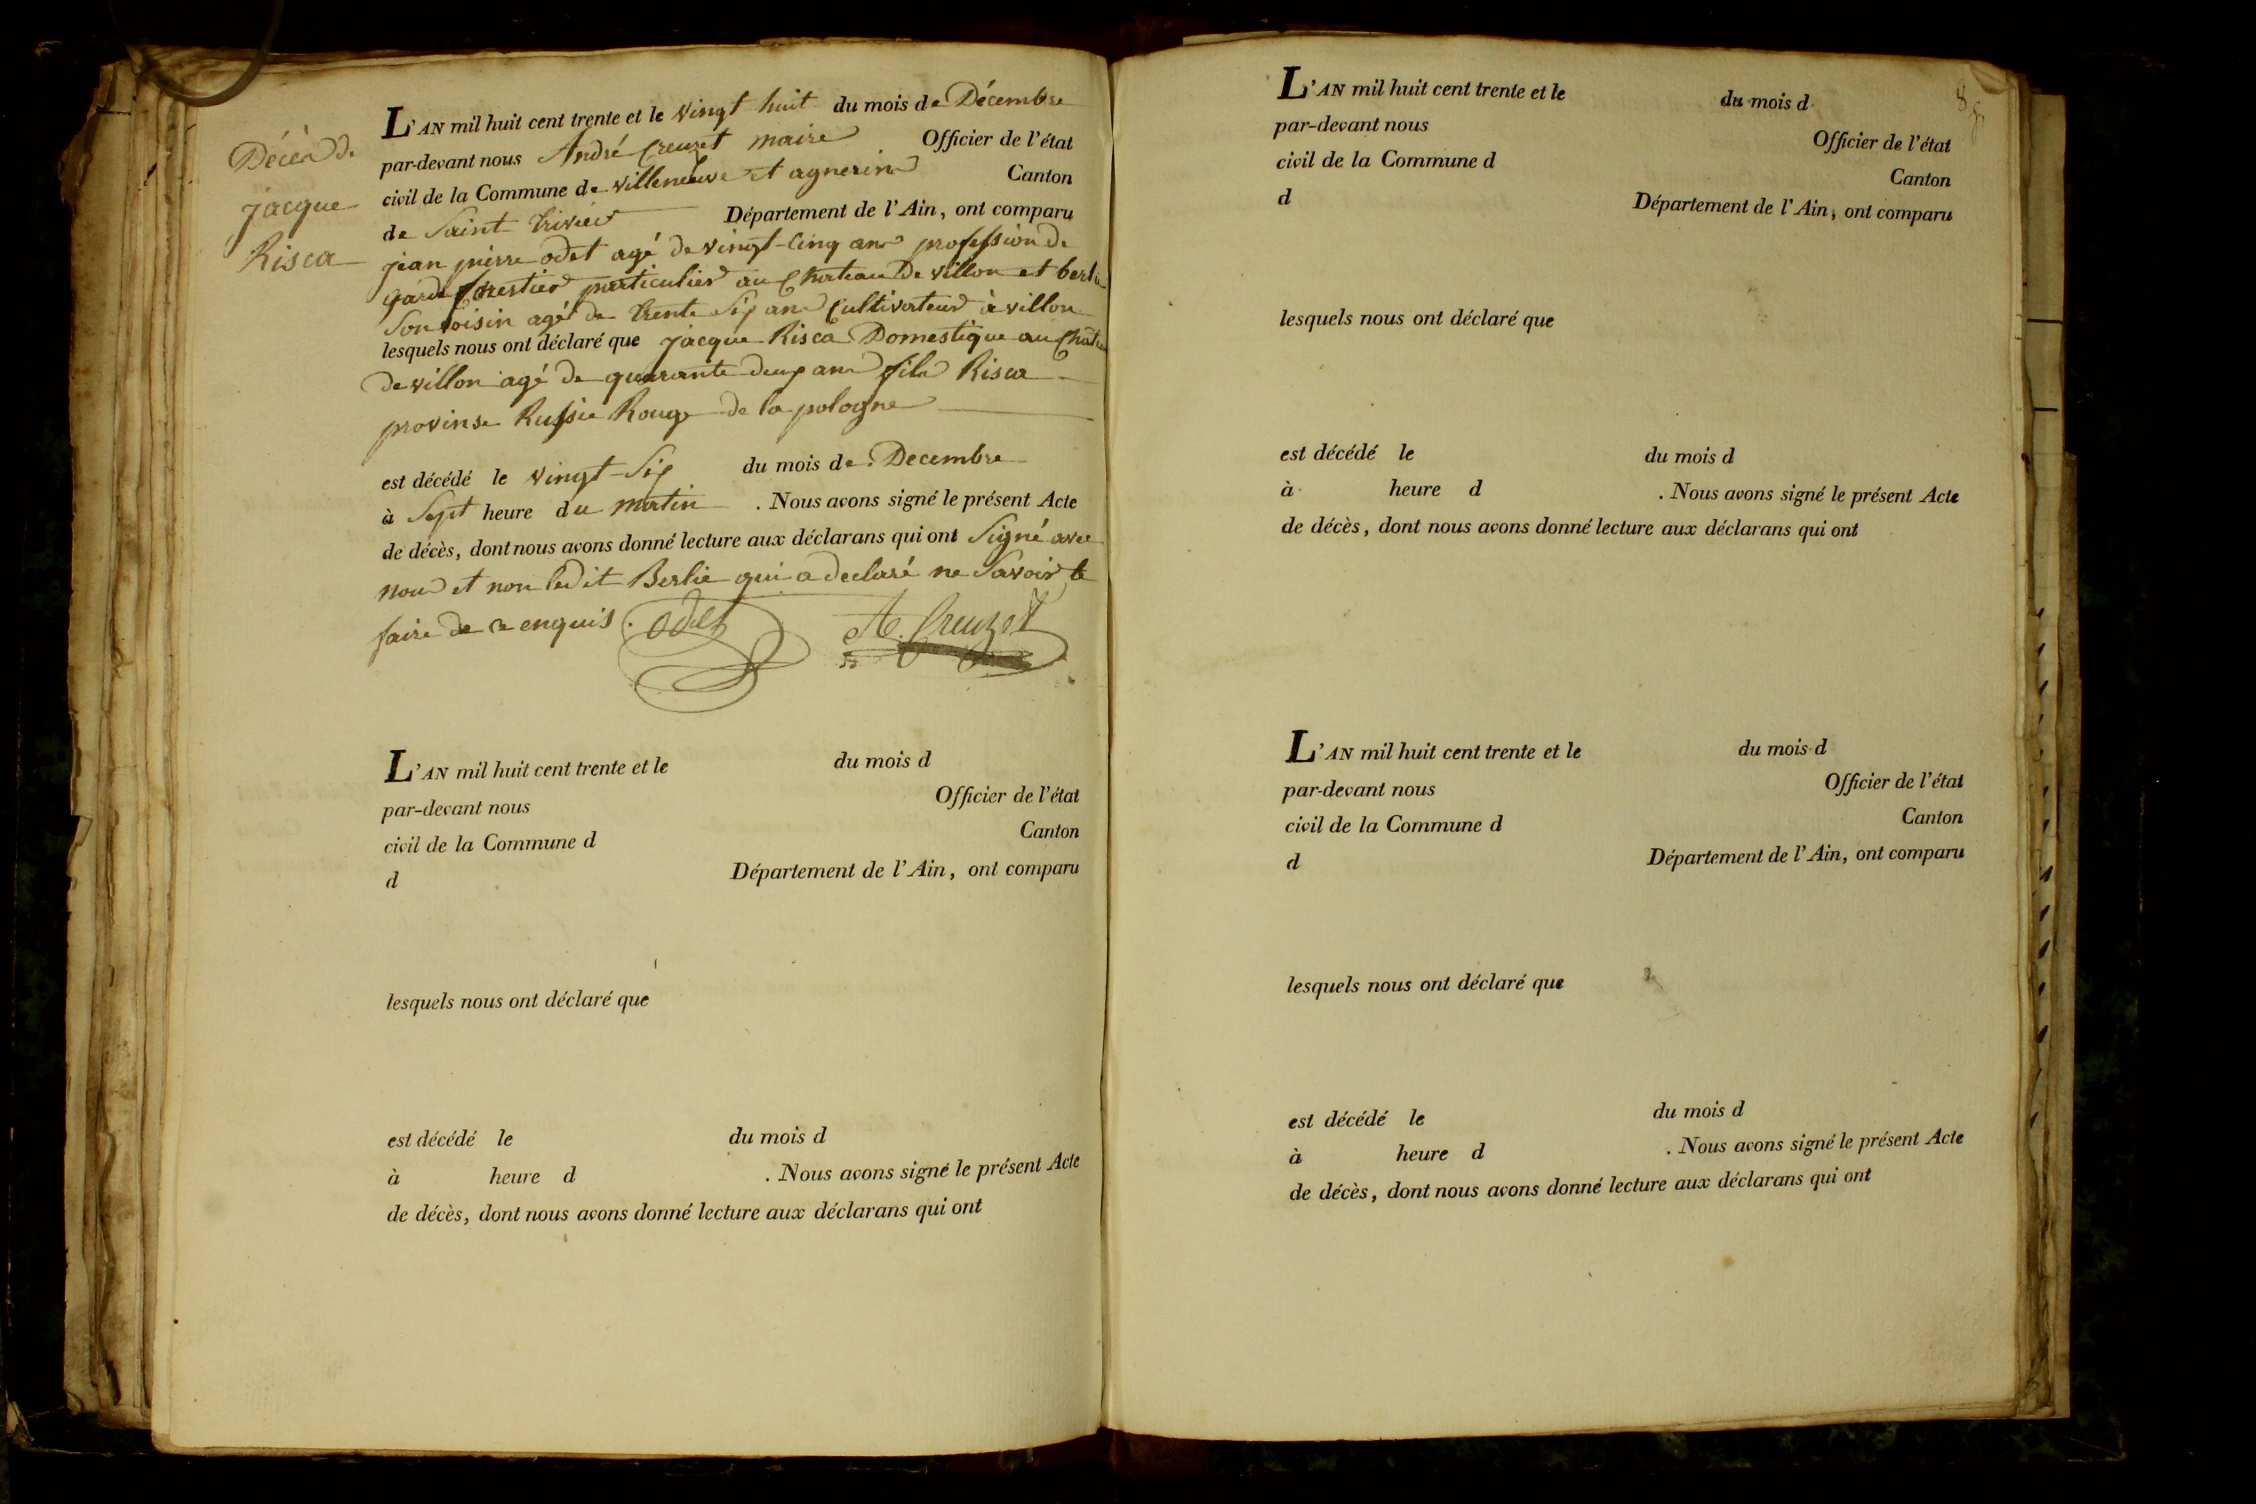 Décès de
jacque
Risca
L'AN mil huit cent trente et le vingt huit du mois de Décembre
par-devant nous André Creuzet maire Officier de l'état
civil de la Commune de villeneuve et agnerins Canton
de Saint trivier Département de l'Ain, ont comparu
jean pierre odet agé de vingt-cinq ans profession de
garde forestier particulier au chateau De villon et berlie
Son voisin agé de trente Six ans Cultivateur à villon
lesquels nous ont déclaré que jacque Risca Domestique au Chateau
de villon agé de quarante deux ans fils Risca
provinse Russie Rouge de la pologne
est décédé le vingt-Six du mois de Decembre
à Sept heure du matin . Nous avons signé le présent Acte
de décès, dont nous avons donné lecture aux déclarans qui ont Signé avec
nous et non ledit Berlie qui a declaré ne Savoir le
faire de ce enquis. odet A. Creuzet
L'AN mil huit cent trente et le du mois d
par-devant nous Officier de l'état
civil de la Commune d Canton
d Département de l'Ain, ont comparu
lesquels nous ont déclaré que
est décédé le du mois d
à heure d . Nous avons signé le présent Acte
de décès, dont nous avons donné lecture aux déclarans qui ont
8
L'AN mil huit cent trente et le du mois d
par-devant nous Officier de l'état
civil de la Commune d Canton
d Département de l'Ain, ont comparu
lesquels nous ont déclaré que
est décédé le du mois d
à heure d . Nous avons signé le présent Acte
de décès, dont nous avons donné lecture aux déclarans qui ont
L'AN mil huit cent trente et le du mois d
par-devant nous Officier de l'état
civil de la Commune d Canton
d Département de l'Ain, ont comparu
lesquels nous ont déclaré que
est décédé le du mois d
à heure d . Nous avons signé le présent Acte
de décès, dont nous avons donné lecture aux déclarans qui ont